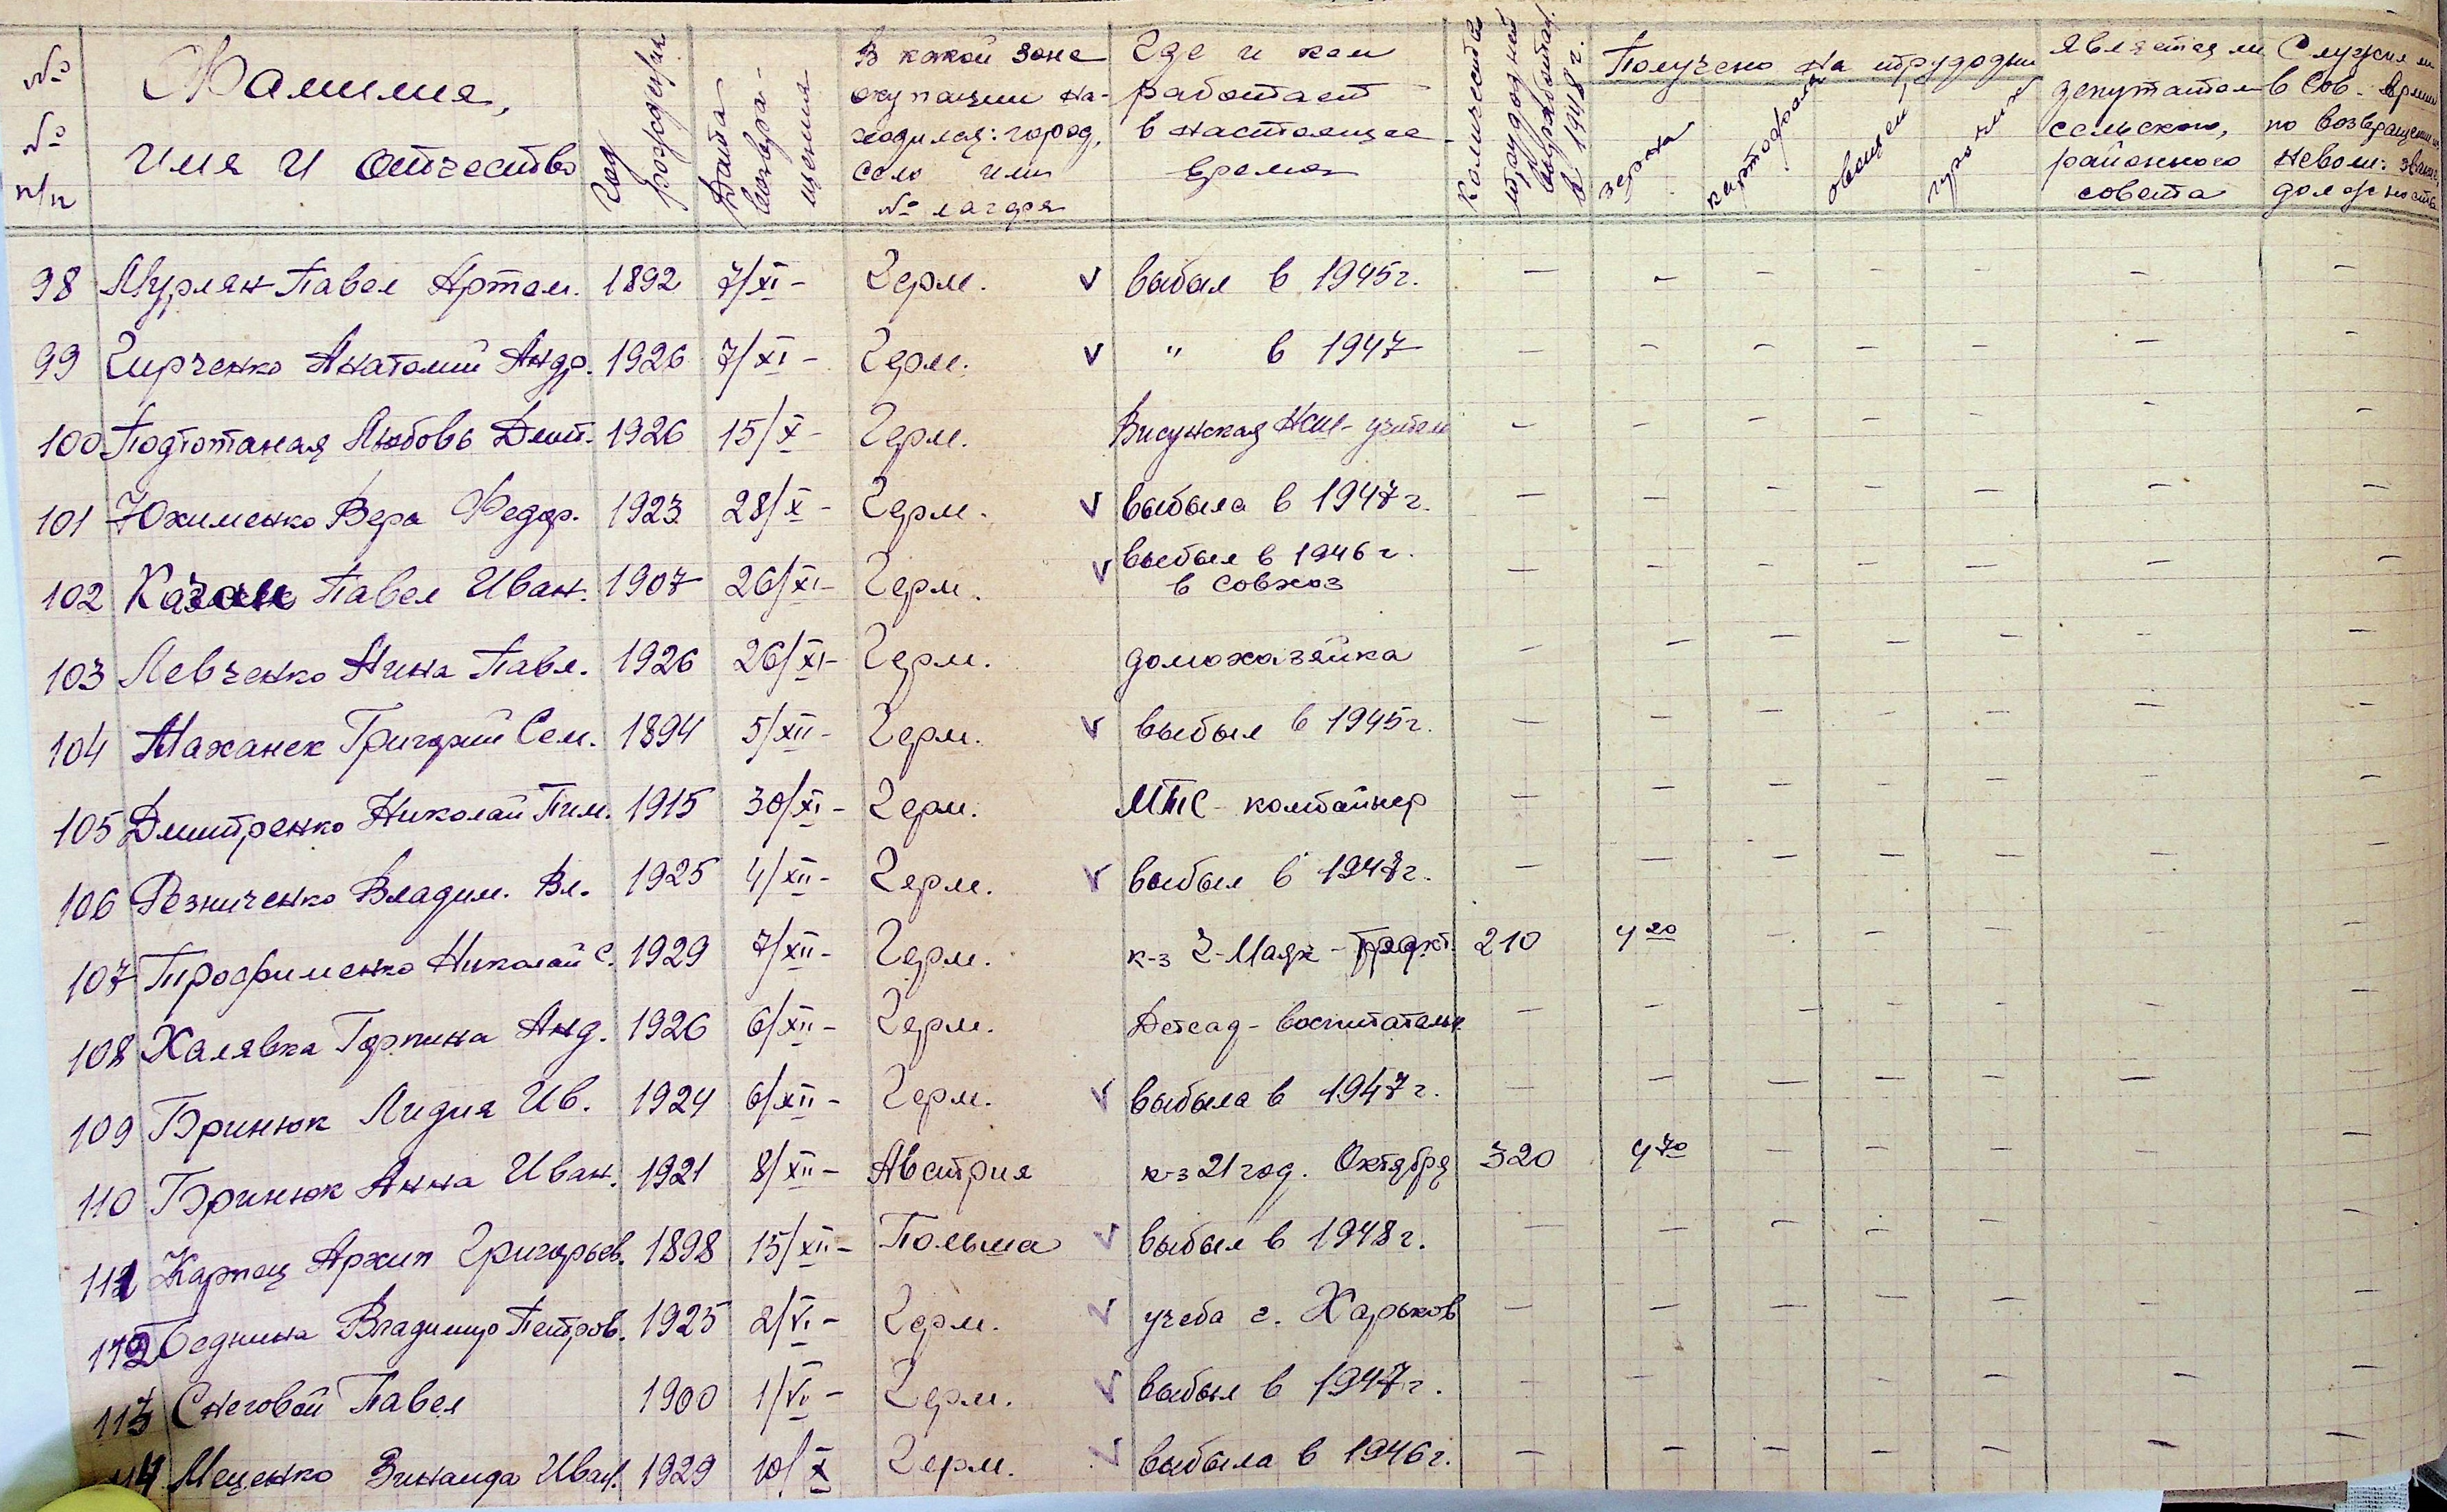 № № п/п Фамилия, имя и отчество Год рождения Дата возвращения В какой зоне окупации находился: город, село или № лагеря Где и кем работает в настоящее время Количество трудодней выработан. в 1948 г. Получено на трудодни зерна картофеля овощей прочих Является ли депутатом сельского, районного совета Служил ли в Сов. Армии по возвращении из неволи: звание, должность
98 Мурлян Павел Артем. 1892 7/XI - Герм. v выбыл в 1945 г. — — — — — — —
99 Гирченко Анатолий Андр. 1926 7/XI - Герм. v " в 1947 — — — — — — —
100 Подтотаная Любовь Дмит. 1926 15/X - Герм. Висунская НСШ - учитель — — — — — — —
101 Юхименко Вера Федор. 1923 28/X - Герм. v выбыла в 1947 г. — — — — — — —
102 Казан Павел Иван. 1907 26/XI - Герм. v выбыл в 1946 г. в совхоз — — — — — — —
103 Левченко Нина Павл. 1926 26/XI - Герм. домохазяйка — — — — — — —
104 Маханек Григорий Сем. 1894 5/XII - Герм. v выбыл в 1945 г. — — — — — — —
105 Дмитренко Николай Пим. 1915 30/XI - Герм. МТС - комбайнер — — — — — — —
106 Резниченко Владим. Вл. 1925 4/XII - Герм. v выбыл в 1947 г. — — — — — — —
107 Трофименко Николай С. 1929 7/XII - Герм. к-з 2-Маяк - тракт. 210 4 20 — — — — —
108 Халявка Горпина Анд. 1926 6/XII - Герм. Детсад - воспитательн. — — — — — — —
109 Бринюк Лидия Ив. 1924 6/XII - Герм. v выбыла в 1947 г. — — — — — — —
110 Бринюк Анна Иван. 1921 8/XII - Австрия к-з 21 год. Октября 320 4 70 — — — — —
111 Карпец Архип Григорьев. 1898 15/XII - Польша v выбыл в 1948 г. — — — — — — —
112 Беднина Владимир Петров. 1925 2/VI - Герм. v учеба г. Харьков — — — — — — —
113 Снеговой Павел 1900 1/VI - Герм. v выбыл в 1947 г. — — — — — — —
114 Меценко Зинаида Иван. 1929 10/X Герм. v выбыла в 1946 г. — — — — — — —